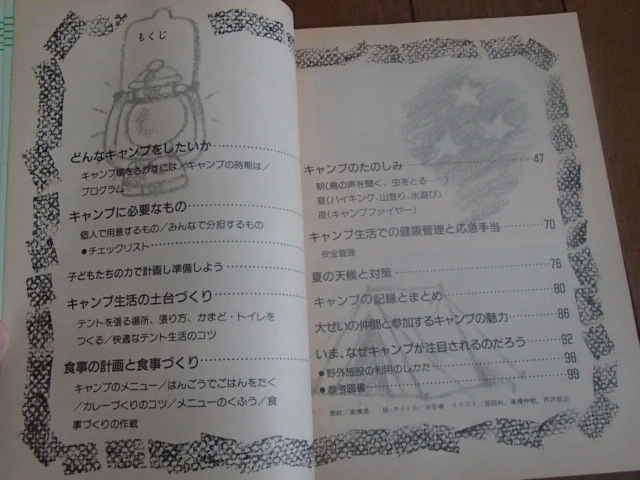 もくじ
どんなキャンプをしたいか
キャンプ場をさがすには/キャンプの時期は/
プログラム
キャンプに必要なもの
個人で用意するもの/みんなで分担するもの
●チェックリスト
子どもたちの力で計画し準備しよう
キャンプ生活の土台づくり
テントを張る場所、張り方、かまど・トイレを
つくる/快適なテント生活のコツ
食事の計画と食事づくり
キャンプのメニュー/はんごうでごはんをたく
/カレーづくりのコツ/メニューのくふう/食
事づくりの作戦
キャンプのたのしみ 47
朝(鳥の声を聞く、虫をとる……)
昼(ハイキング、山登り、水遊び)
夜(キャンプファイヤー)
キャンプ生活での健康管理と応急手当 70
安全管理
夏の天候と対策 76
キャンプの記録とまとめ 80
大ぜいの仲間と参加するキャンプの魅力 86
いま、なぜキャンプが注目されるのだろう 92
●野外施設の利用のしかた 98
●参考図書 99